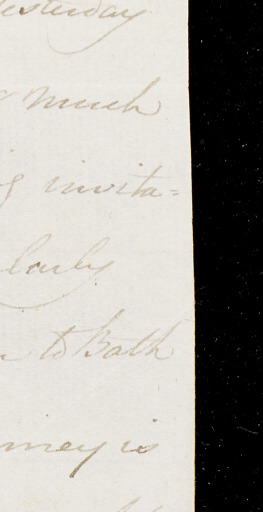 esterday
much
g invita=
larly
to Bath
rney is